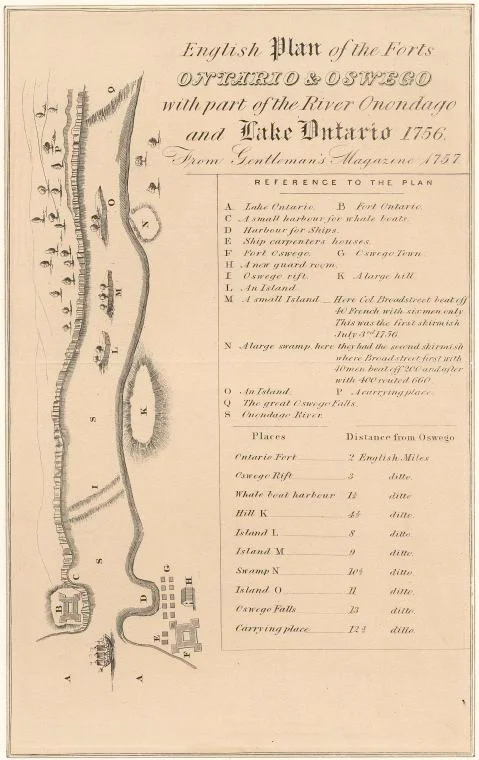 English Plan of the Forts
ONTARIO & OSWEGO
with part of the River Onondago
and Lake Ontario 1756.
From Gentleman's Magazine 1757
REFERENCE TO THE PLAN
A Lake Ontario. B Fort Ontario.
C A small harbour for whale boats.
D Harbour for Ships.
E Ship carpenters houses.
F Fort Oswego. G Oswego Town.
H A new guard room.
I Oswego rift. K A large hill.
L An Island.
M A small Island _ Here Col. Broadstreet beat off
40 French with six men only.
This was the first skirmish
July 3rd 1756
N A large swamp, here they had the second skirmish
where Broadstreet first with
40 men beat off 200 and after
with 400 routed 660.
O An Island. P A carrying place.
Q The great Oswego Falls.
S Onondago River.
Places Distance from Oswego
Ontario Fort 2 English Miles
Oswego Rift 3 ditto.
Whale boat harbour 1½ ditto
Hill K 4½ ditto.
Island L 8 ditto.
Island M 9 ditto.
Swamp N 10½ ditto.
Island O 11 ditto.
Oswego Falls 13 ditto.
Carrying place 12½ ditto.
Q
P
O
N
M
L
K
S
I
S
C
B
D
G
H
E
F
A
A